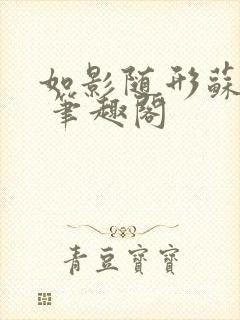 如影随形蘇
笔趣阁
青豆寶寶